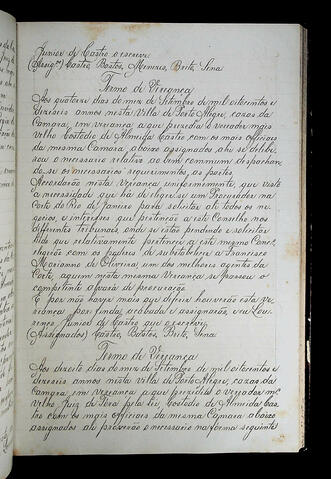 Junior de Castro o escrevi
(Assigos) Castro, Bastos, Menezes, Brito, Sena
Termo de Vereança
Aos quatorze dias do mez de Setembro de mil oitocentos e
dezeseis annos nesta Villa de Porto Alegre, cazas da
Camara, em vereança a que prezidio o vereador mais
velho Custodio de Almeida Castro com os mais officiaes
da mesma Camara, abaixo assignados ahi se delibe-
rou o necessario relativo ao bem commum despachan-
do-se os necessarios requerimentos, as partes.
Acordarão nesta Vereança uniformemente, que visto
a necessidade que há de eleger-se um Procurador na
Corte do Rio de Janeiro para solicitar até todos os ne-
gocios, e interesses que pertenção a este Conselho nos
differentes tribunaes, onde se estão pendendo e solicitar
tudo que relativamente pertencer a este mesmo Conc.
elegirão com os poderes de substabelecer a Francisco
Marianno de Oliveira um dos melhores agentes da
Corte, a quem nesta mesma Vereança se passou o
competente alvará de procuração.
E por não haver mais que deferir houverão esta Ve-
reança por finda, acabada e assignarão, eu Lou-
renço Junior de Castro que o escrevi
(Assignados) Castro, Bastos, Brito, Sena
Termo de Vereança
Aos dezoito dias do mez de Setembro de mil oitocentos e
dezeseis annos nesta villa de Porto Alegre, cazas da
Camara em vereança a que prezidio o vereador mais
velho, Juiz de Fora pela lei, Custodio de Almeida Cas-
tro com os mais officiaes da mesma Camara abaixo
assignados ahi proverão o necessario na forma seguinte